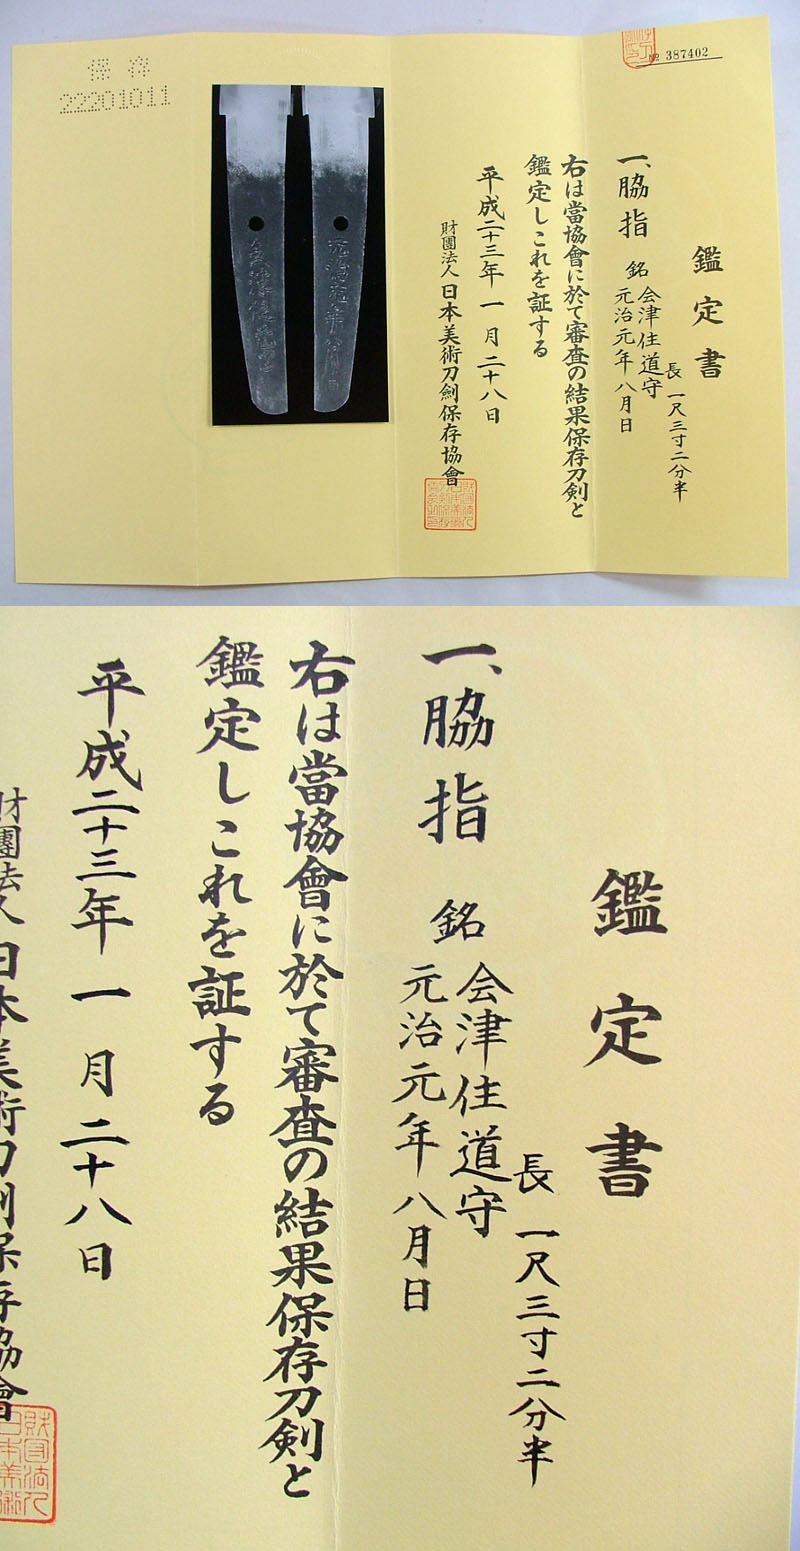 № 387402
鑑定書
長 一尺三寸二分半
一、脇指 銘 会津住道守
元治元年八月日
右は當協會に於て審査の結果保存刀剣と
鑑定しこれを証する
平成二十三年一月二十八日
財團法人日本美術刀劍保存協會
保存
22201011
鑑定書
長 一尺三寸二分半
一、脇指 銘 会津住道守
元治元年八月日
右は當協會に於て審査の結果保存刀剣と
鑑定しこれを証する
平成二十三年一月二十八日
財團法人日本美術刀劍保存協會